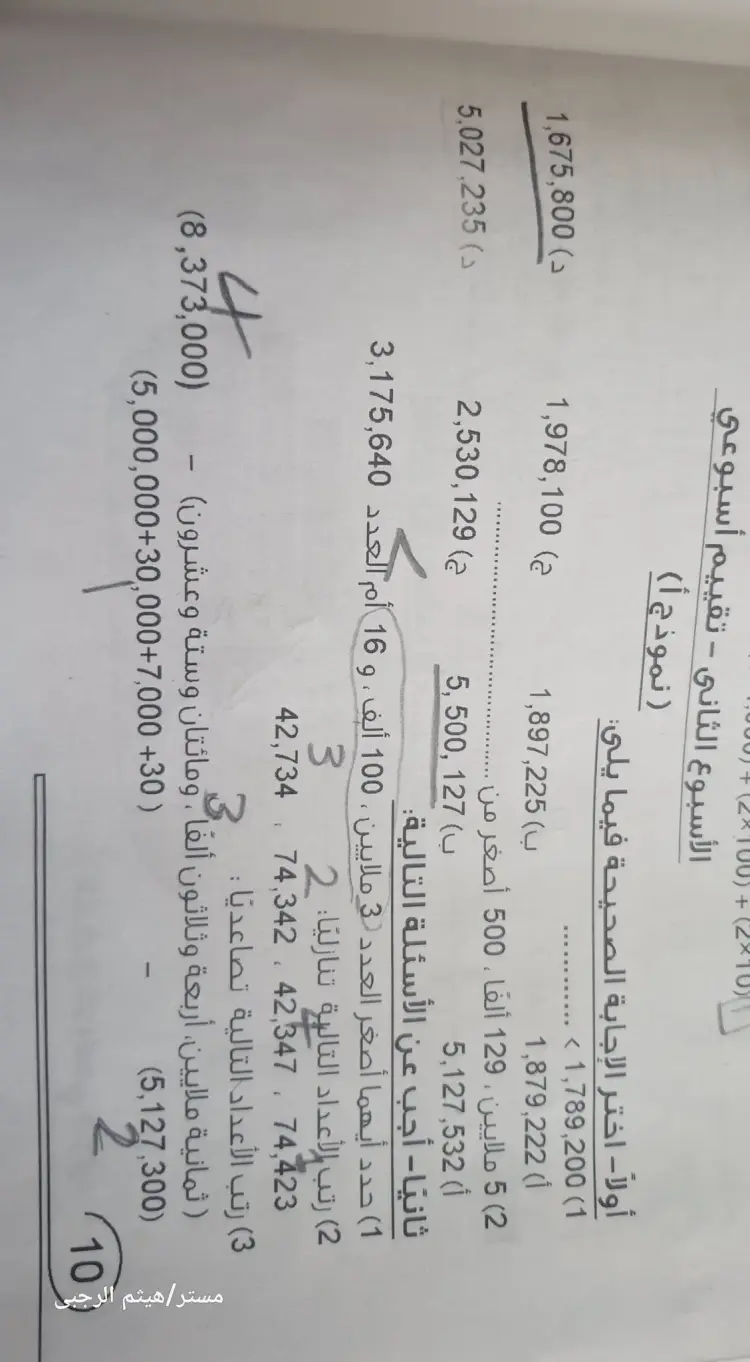 + (2×100) + (2×10)
الأسبوع الثاني - تقييم أسبوعي
(نموذج أ)
أولاً - اختر الإجابة الصحيحة فيما يلي:
1) 1,789,200 > ............
أ) 1,879,222 ب) 1,897,225 ج) 1,978,100 د) 1,675,800
2) 5 ملايين، 129 ألفًا، 500 أصغر من ............
أ) 5,127,532 ب) 5,500,127 ج) 2,530,129 د) 5,027,235
ثانيًا - أجب عن الأسئلة التالية:
1) حدد أيهما أصغر العدد 3 ملايين، 100 ألف، و 16 أم العدد 3,175,640
<
2) رتب الأعداد التالية تنازليًا:
1 4 2 3
74,423 ، 42,347 ، 74,342 ، 42,734
3) رتب الأعداد التالية تصاعديًا:
(ثمانية ملايين، أربعة وثلاثون ألفًا، ومائتان وستة وعشرون) - (8,373,000)
3 4
(5,127,300) - (5,000,000+30,000+7,000+30)
2 1
10
مستر/هيثم الرجبى